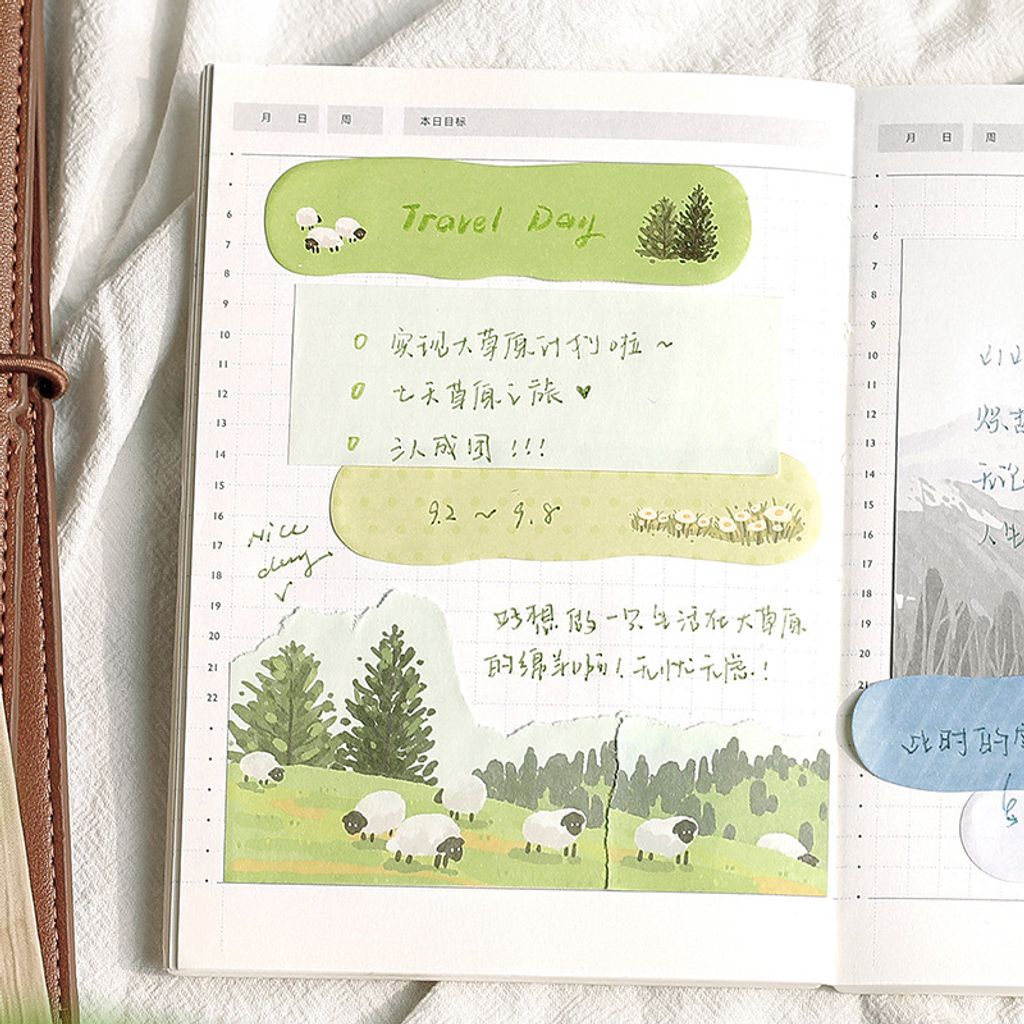 月 日 周 本日目标
Travel Day
6
7
8
9
10
11
12
13
14
15
16
17
18
19
20
21
22
实现大草原计划啦~
七天草原之旅♥
三人成团!!!
9.2 ~ 9.8
Nice
day
好想做一只生活在大草原
的绵羊啊!无忧无虑!
月 日 周
6
7
8
9
10
11
12
13
14
15
16
17
18
19
20
21
人生
此时的